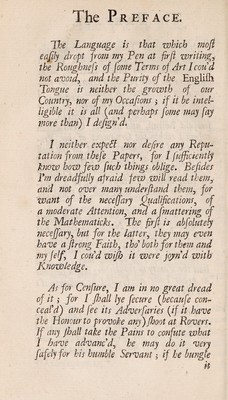 The PREFACE.
The Language is that which most
easily dropt from my Pen at first writing,
the Roughness of some Terms of Art I cou'd
not avoid, and the Purity of the English
Tongue is neither the growth of our
Country, nor of my Occasions; if it be intel-
ligible it is all (and perhaps some may say
more than) I design'd.
I neither expect nor desire any Repu-
tation from these Papers, for I sufficiently
know how few such things oblige. Besides
I'm dreadfully afraid few will read them,
and not over many understand them, for
want of the necessary Qualifications, of
a moderate Attention, and a smattering of
the Mathematicks. The first is absolutely
necessary, but for the latter, they may even
have a strong Faith, tho' both for them and
my self, I cou'd wish it were joyn'd with
Knowledge.
As for Censure, I am in no great dread
of it; for I shall lye secure (because con-
ceal'd) and see its Adversaries (if it have
the Honour to provoke any) shoot at Rovers.
If any shall take the Pains to confute what
I have advanc'd, he may do it very
safely for his humble Servant; if he bungle
it